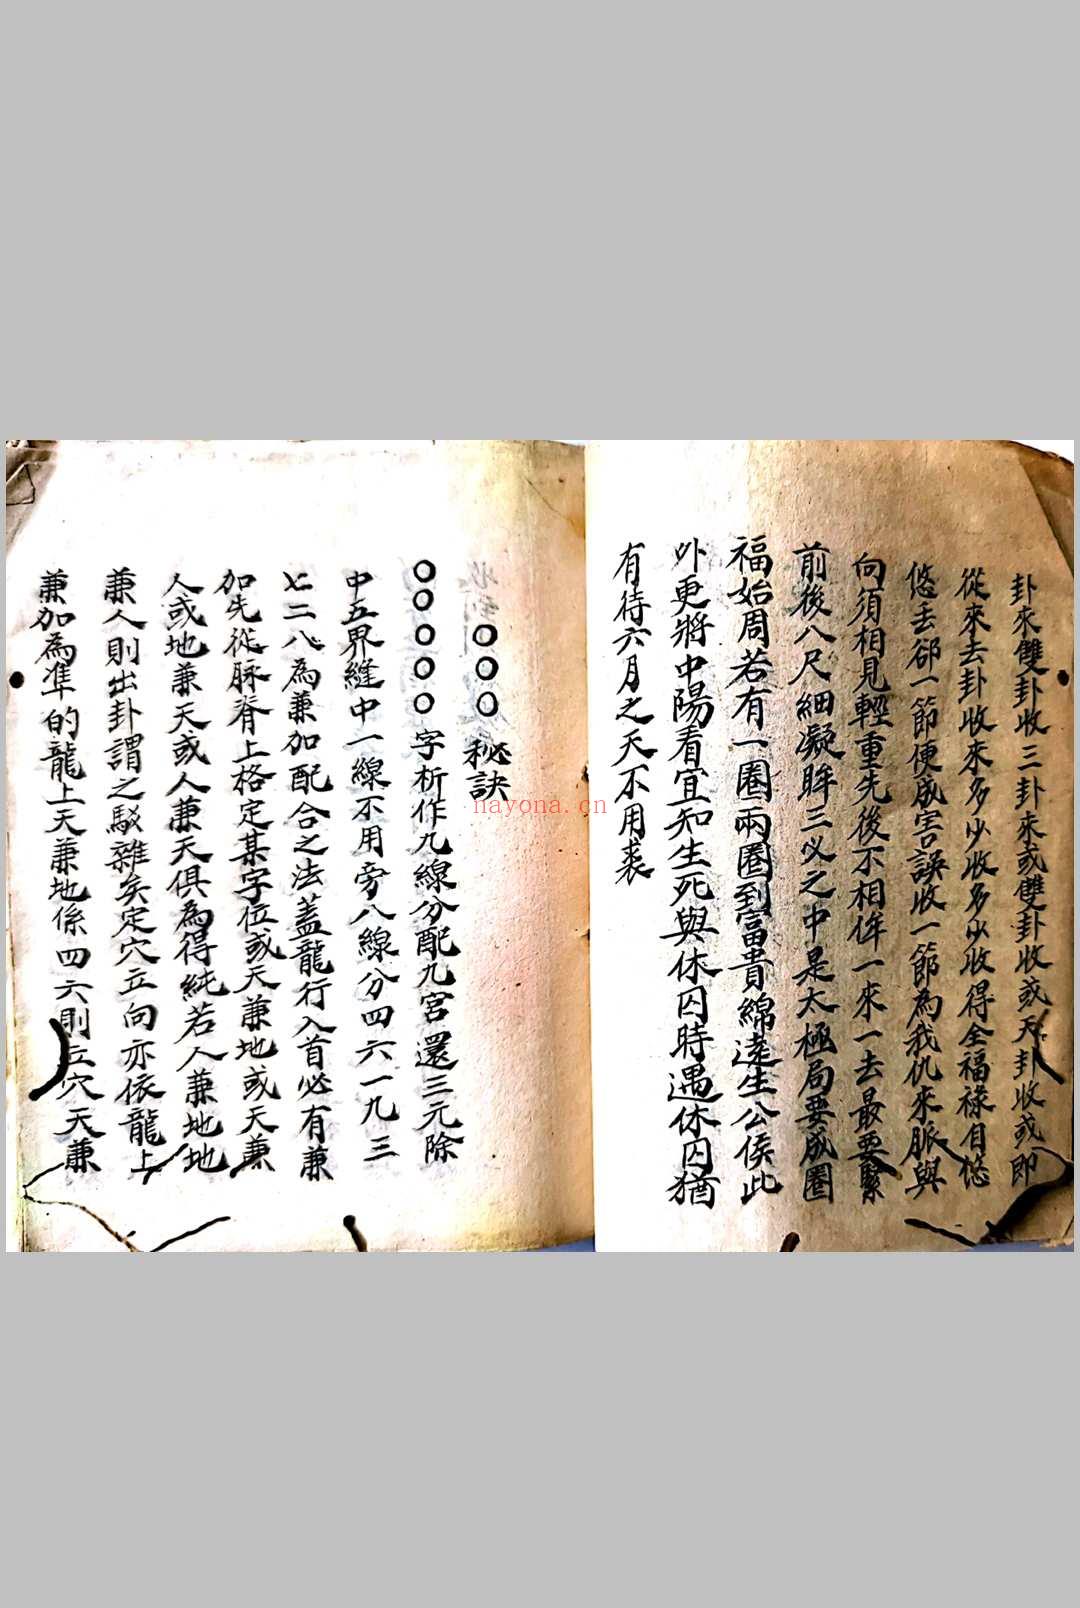 卦來雙卦收三卦來或雙卦收或天卦收或即
從來去卦收來多少收多少收得全福祿自悠
悠丟卻一節便成害誤收一節為我仇來脈與
向須相見輕重先後不相侔一來一去最要緊
前後八尺細凝眸三义之中是太極局要成圈
福始周若有一圈兩圈到富貴綿遠生公侯此
外更將中陽看宜知生死與休囚時遇休囚猶
有待六月之天不用裘
〇〇〇秘訣
〇〇〇〇〇字析作九線分配九宮還三元除
中五界縫中一線不用旁八線分四六一九三
七二八為兼加配合之法蓋龍行入首必有兼
加先從脈脊上格定某字位或天兼地或天兼
人或地兼天或人兼天俱為得純若人兼地地
兼人則出卦謂之駁雜矣定穴立向亦依龍上
兼加為準的龍上天兼地係四六則立穴天兼
nayona.cn